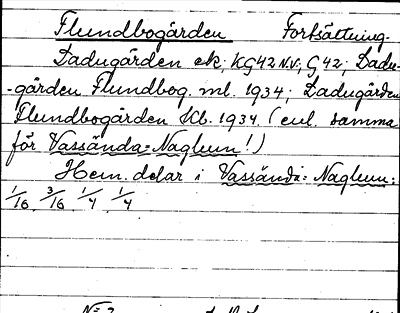 Flundbogården Fortsättning.
Dadugården ek; KG42 N.V.; G42; Dadu-
-gården Flundbog. ml. 1934; Dadugården
Flundbogården Kb. 1934 (enl. samma
för Vassända=Naglum!)
Hem. delar i Vassända=Naglum:
1/16 3/16 1/4 1/4